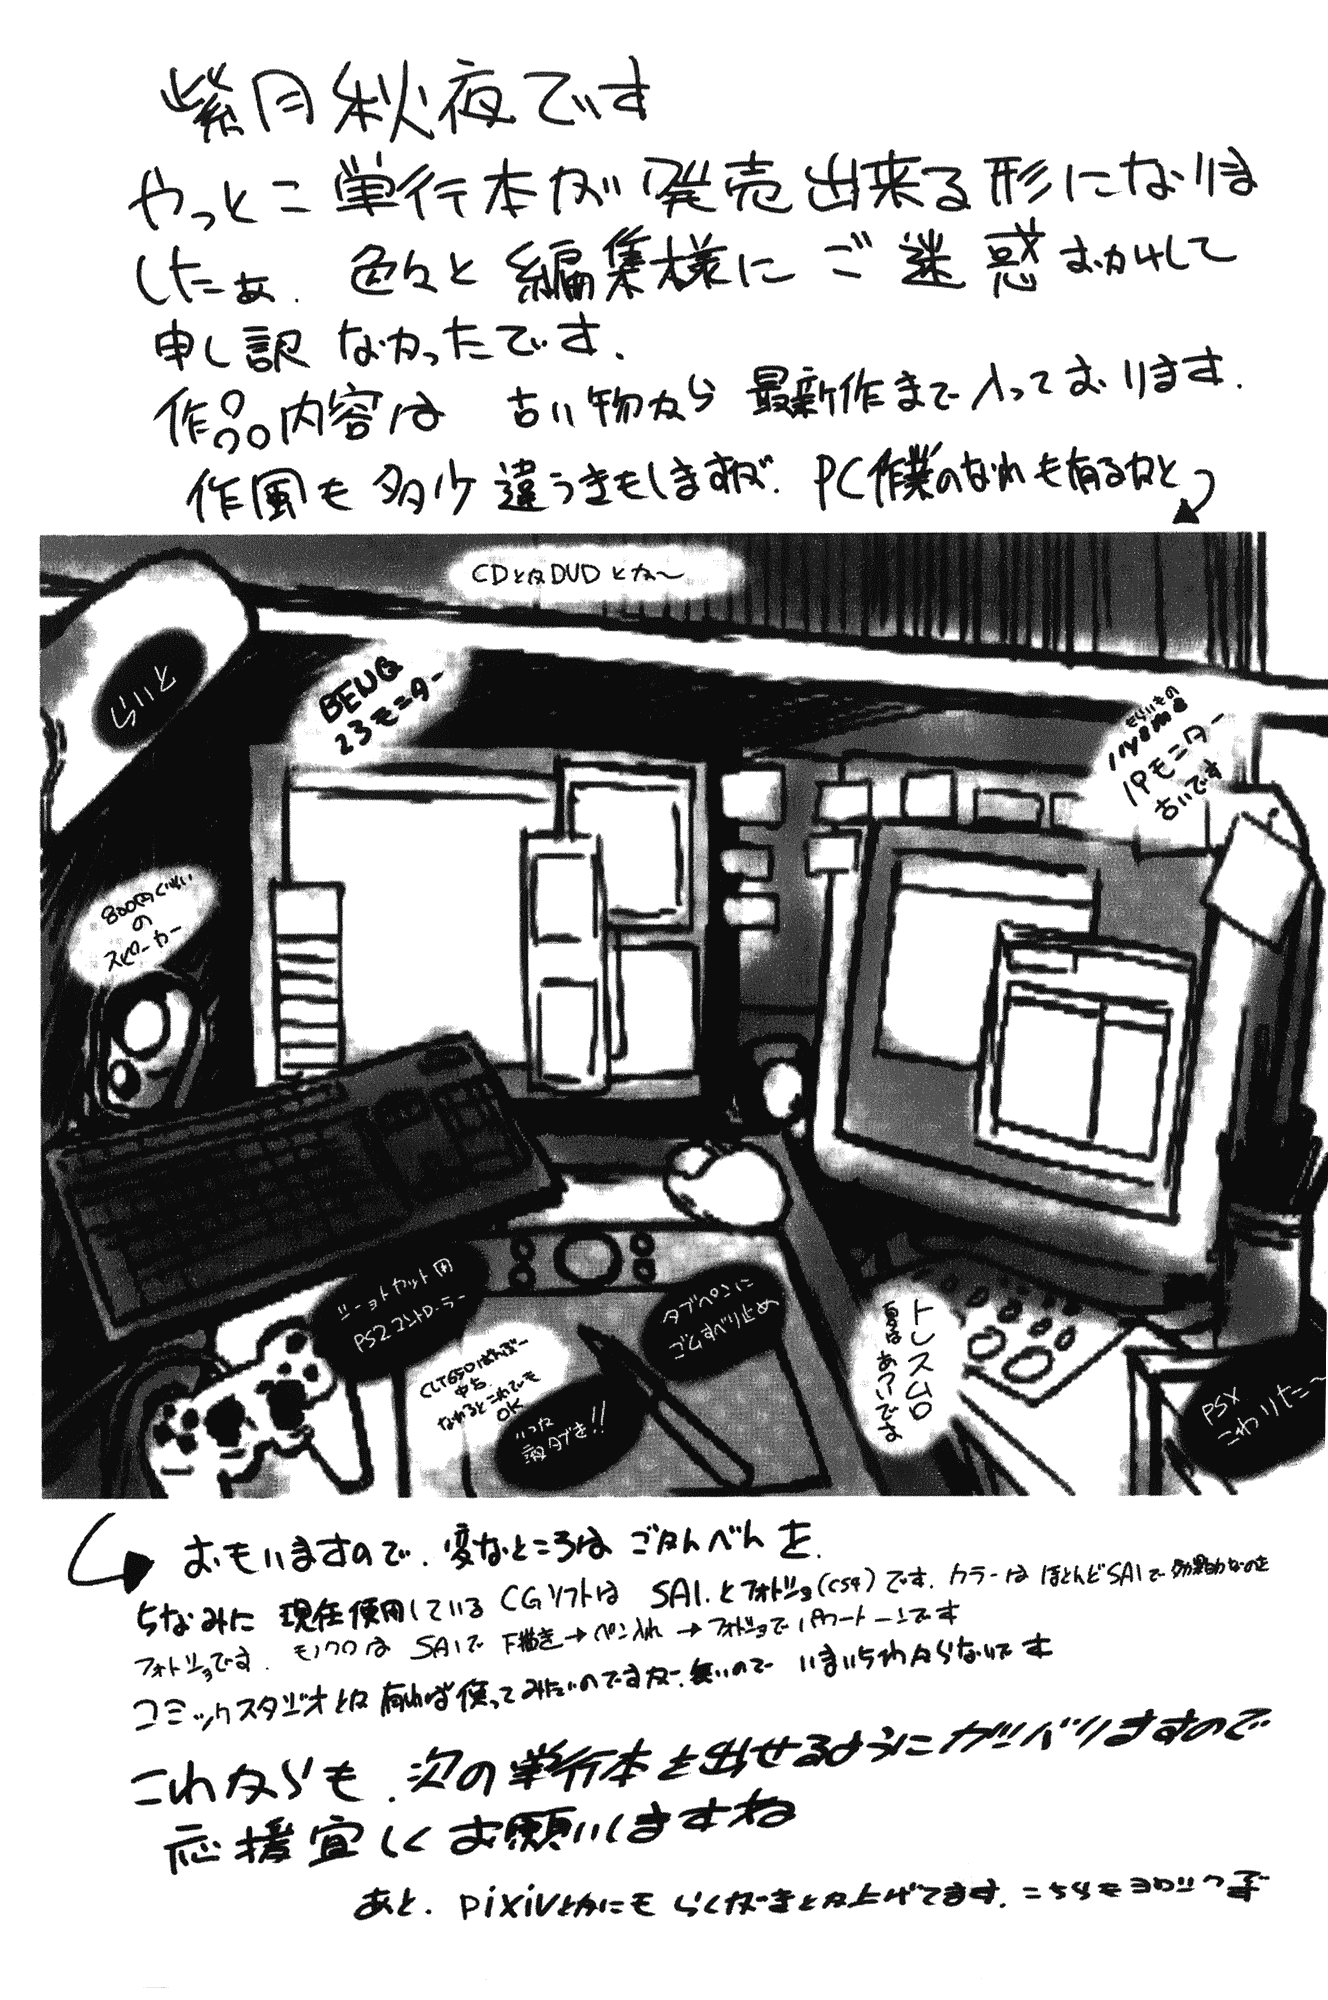 紫月秋夜です
やっとこ単行本が発売出来る形になりま
したぁ. 色々と編集様にご迷惑おかけして
申し訳なかったです.
作品内容は 古い物から 最新作まで入っております.
作風も多少違うきもしますが. PC作業のなれも有るかと
CDとかDVDとか〜
らいと
BENQ
23モニター
もらいもの
iiyama
19モニター
古いです
800円ぐらい
の
スピーカー
ショートカット用
PS2コントローラー
タブペンに
ゴムすべり止め
中古.
なれるとこれでも
OK
液タブを!!
トレス
夏はあついです
PSX
こわりた〜
おもいますので. 変なところはごかんべんを.
ちなみに 現在使用しているCGソフトは SAI.とフォトショ(CS4)です. カラーは ほとんどSAIで 効果的なのを
フォトショです. モノクロは SAIで 下描き→ペン入れ→フォトショでパワートーンです
コミックスタジオとか有れば使ってみたいのですがー. 無いので いまいちわからないです
これからも. 次の単行本を出せるようにガンバりますので
応援宜しくお願いしますね
あと. pixivとかにも らくがきとか上げてます. こちらもヨロシッす